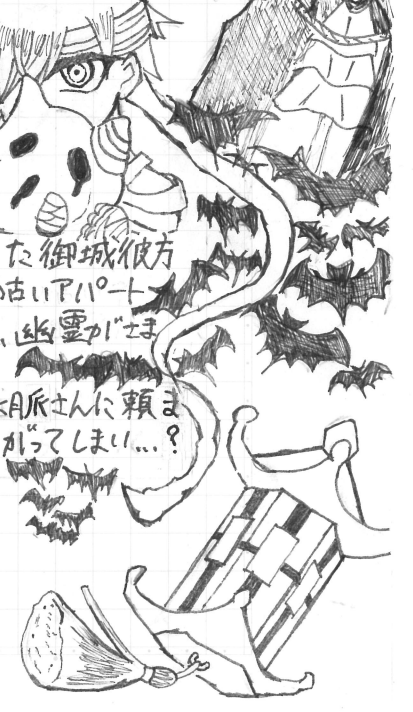 た御城彼方
古いアパート
、幽霊がさま
脈さんに頼ま
がってしまい…？